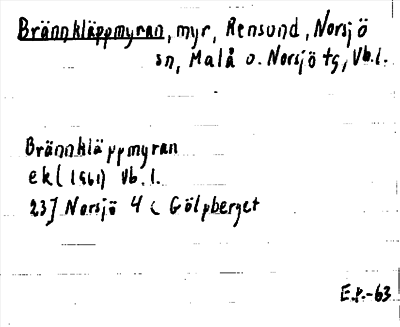 Brännkläppmyran, myr, Rensund, Norsjö
sn, Malå o. Norsjö tg, Vb.l.
Brännkläppmyran
ek (1961) Vb.l.
23J Norsjö 4 c Gölpberget
E.P.-63